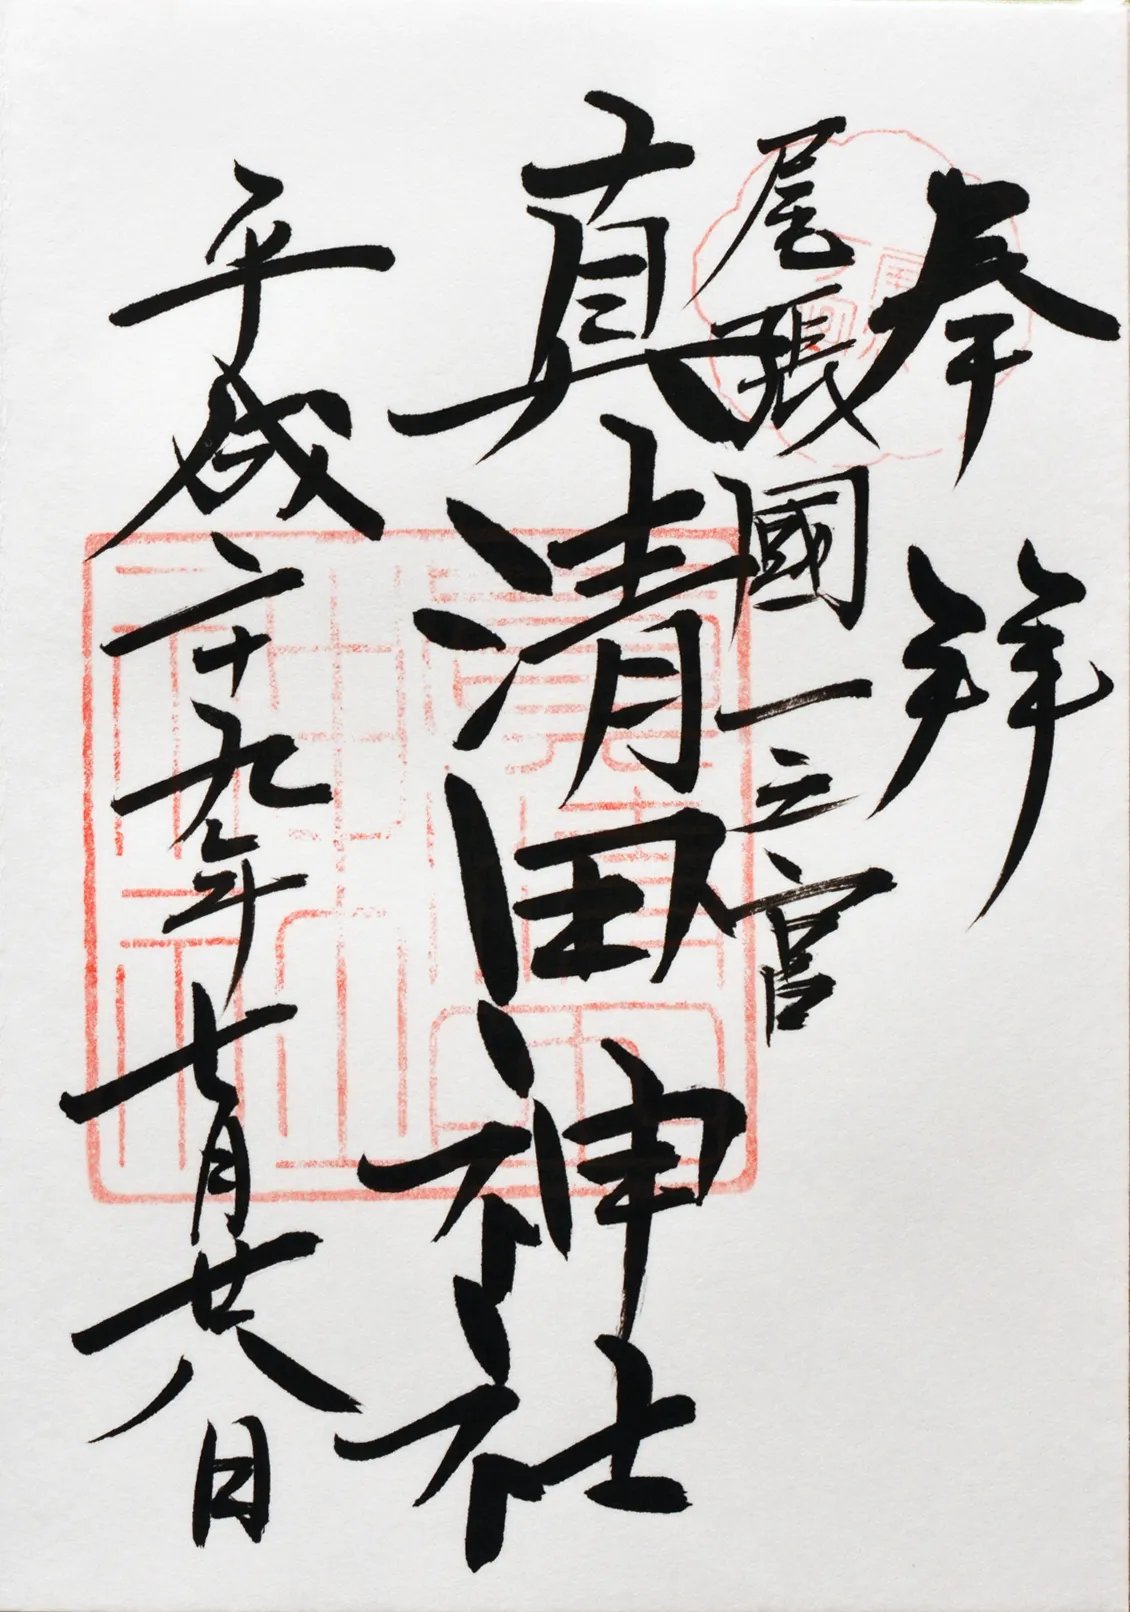 奉拝
尾張國一之宮
真清田神社
平成二十九年七月廿八日